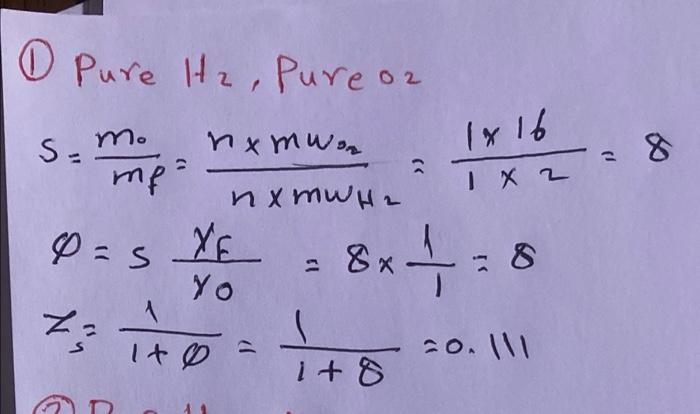 ① Pure H2, Pure O2
S = mo/mf = n x mwO2 / n x mwH2 = 1 x 16 / 1 x 2 = 8
φ = s YF/YO = 8 x 1/1 = 8
Zs = 1/1+φ = 1/1+8 = 0.111